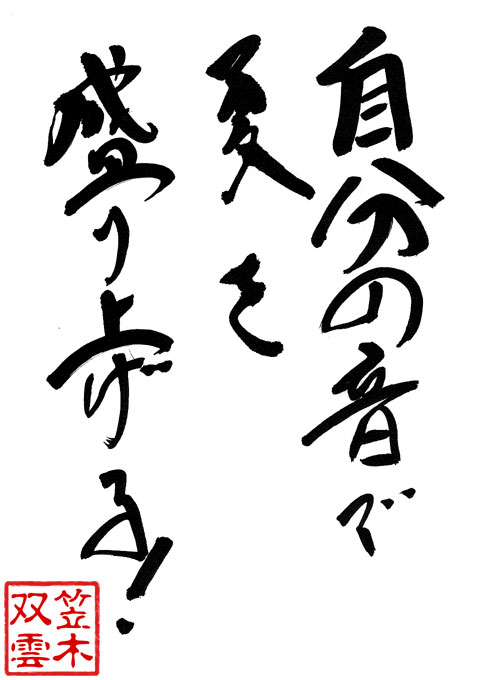 自分の音で
夏を
盛り上げる!
笠木
双雲